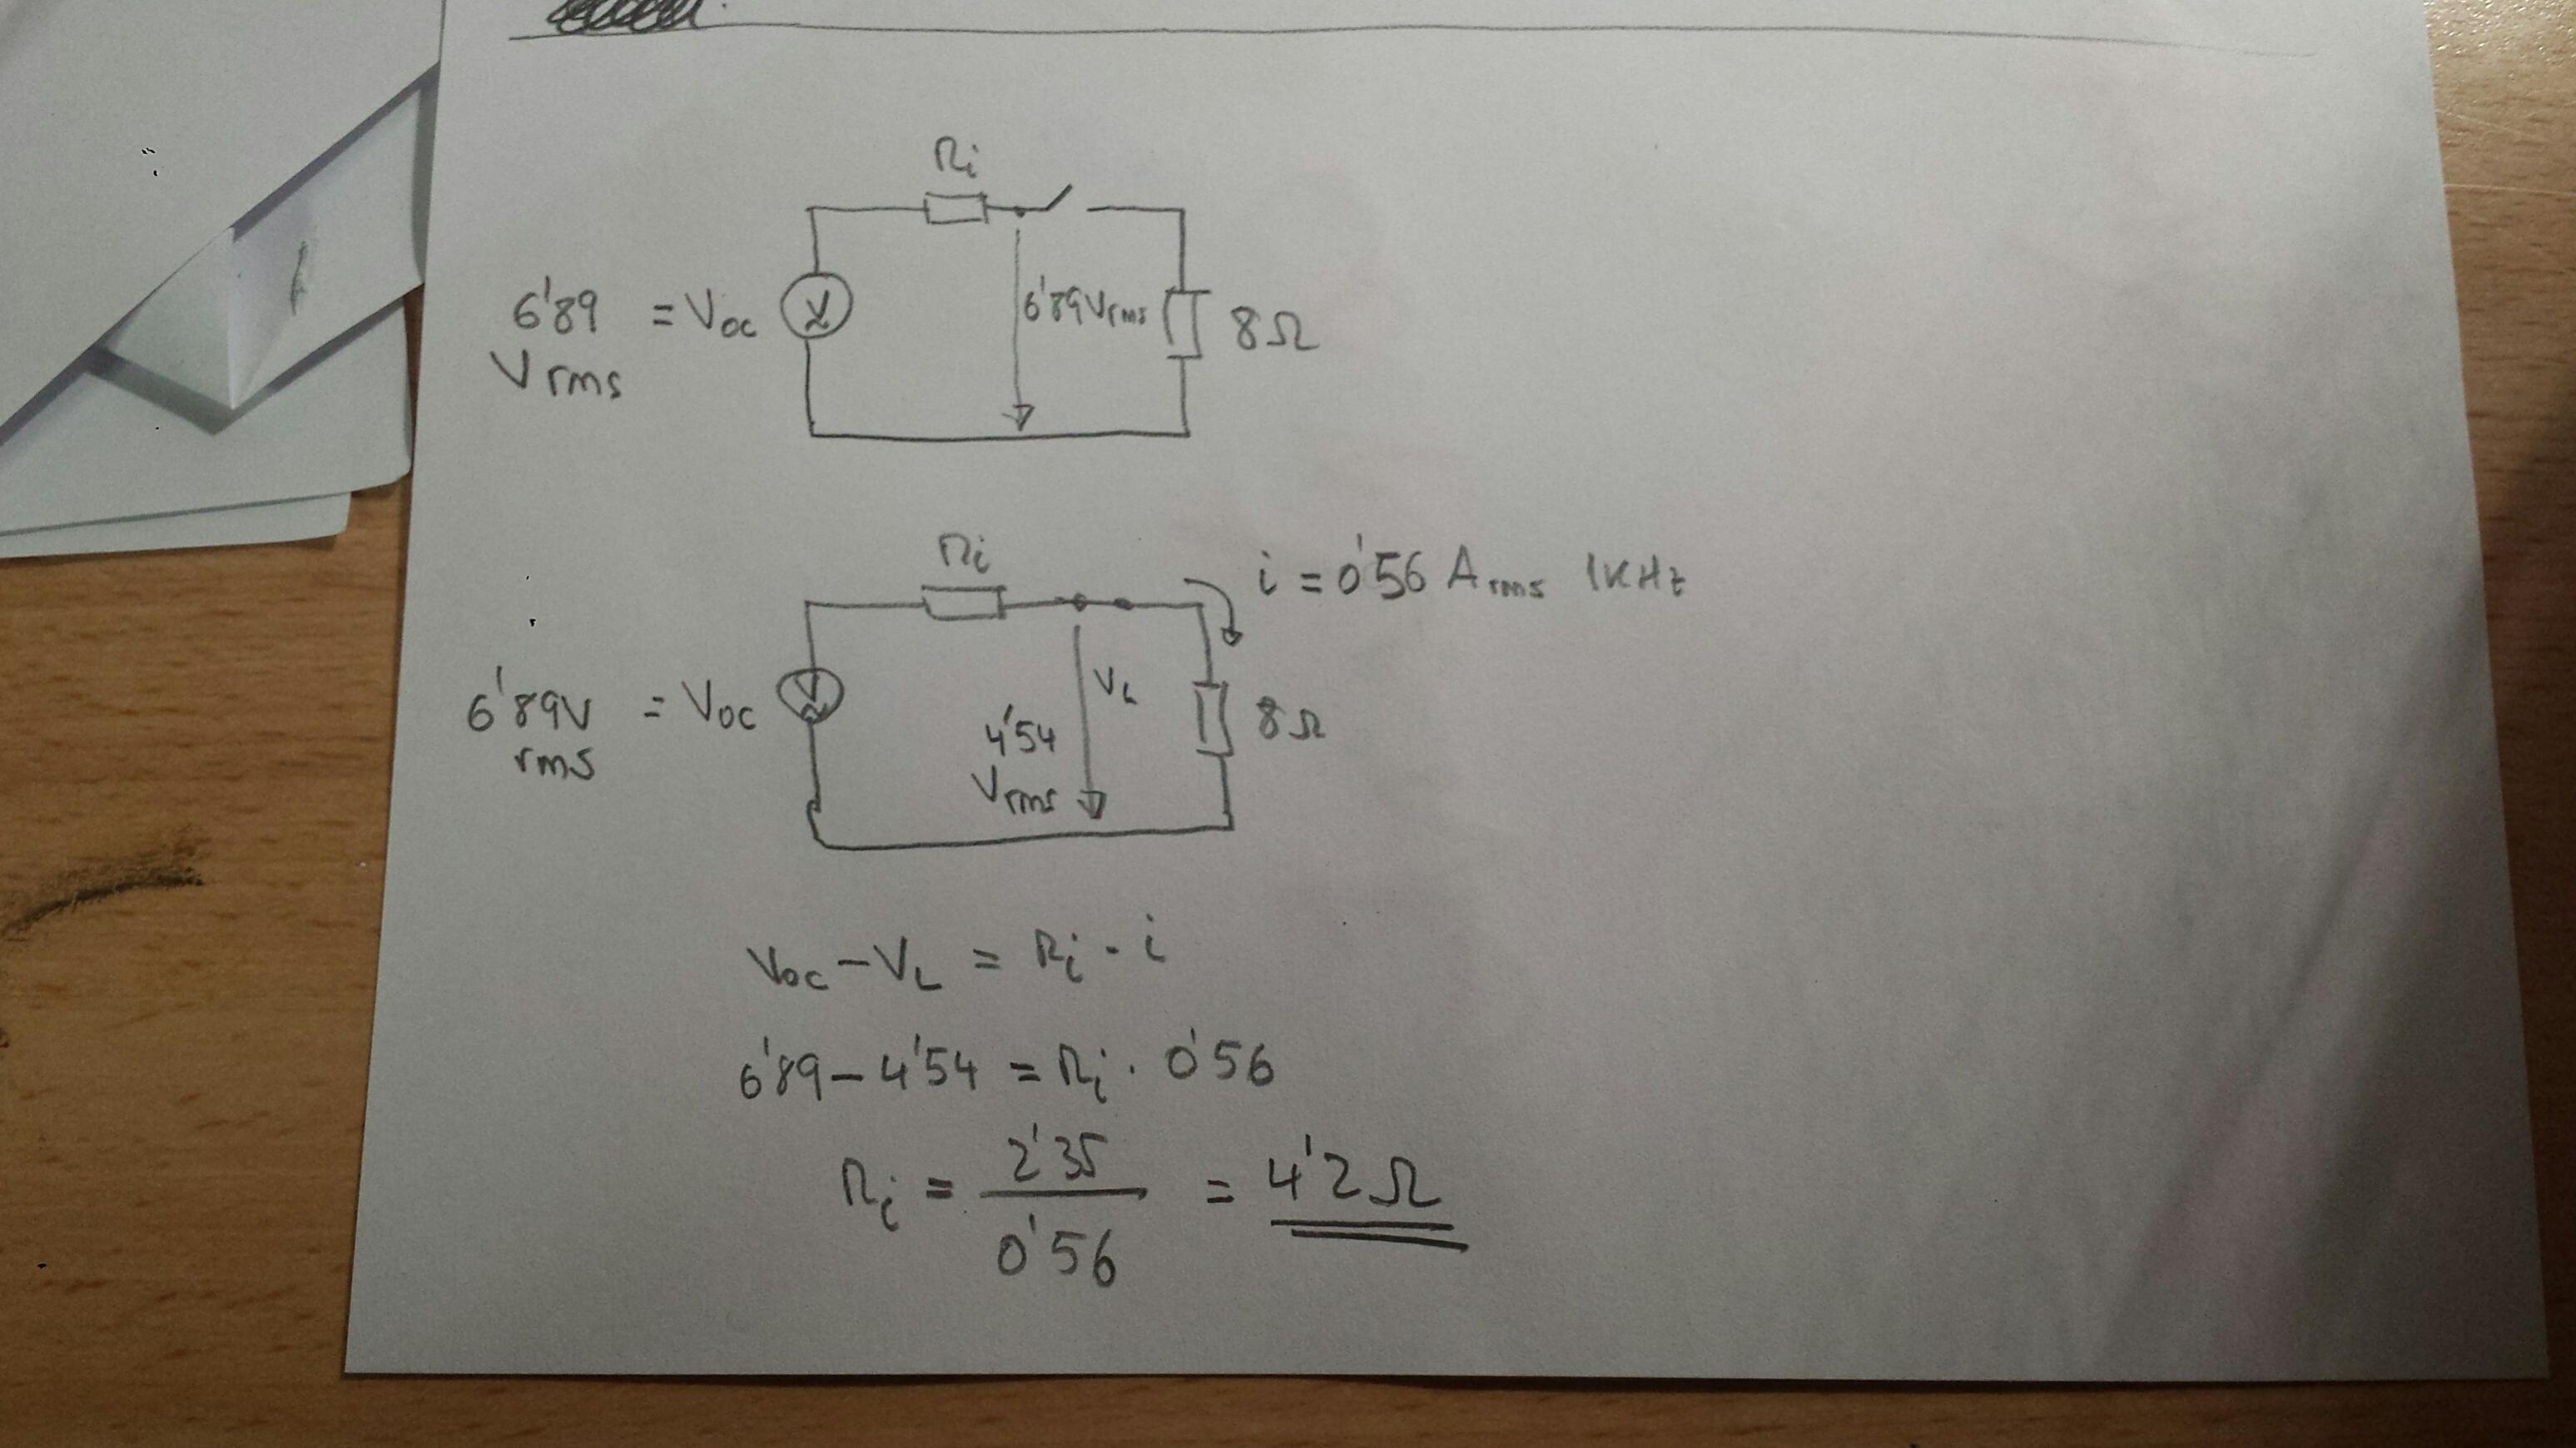 Ri
6'89 = Voc
Vrms
V
6'89Vrms
8Ω
Ri
i = 0'56 Arms 1KHz
6'89V = Voc
rms
V
VL
4'54
Vrms
8Ω
Voc - VL = Ri · i
6'89 - 4'54 = Ri · 0'56
Ri = 2'35 / 0'56 = 4'2Ω